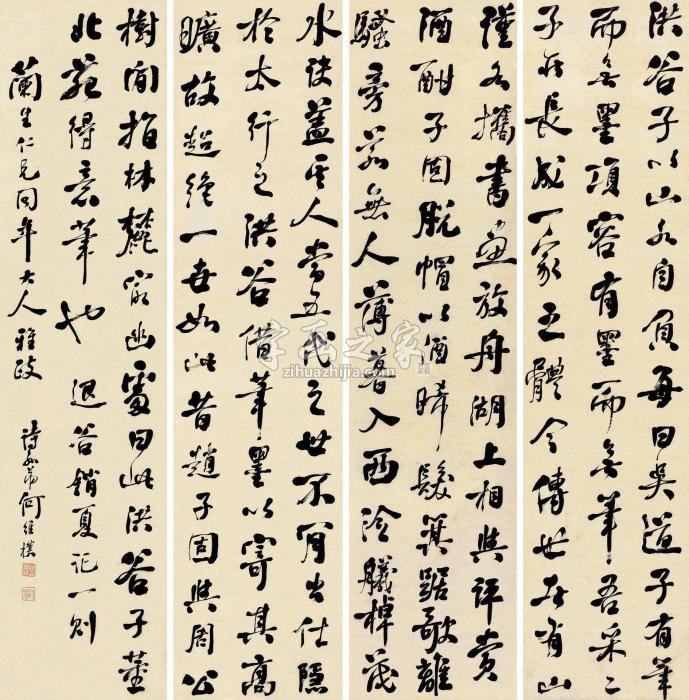 洪谷子以山水自負每曰吳道子有筆
而無墨項容有墨而無筆吾采二
子所長成一家之體今傳世者有山
謹各攜書畫放舟湖上相與評賞
酒酣子固脫帽以酒晞髮箕踞歌離
騷旁若無人薄暮入西泠艤棹茂
水訣蓋其人當五代之世不肯出仕隱
於太行之洪谷借筆墨以寄其高
曠故超絕一世如此昔趙子固與周公
樹間指林麓最幽處曰此洪谷子董
北苑得意筆也 退谷銷夏記一則
蘭生仁兄同年大人雅政 詩孫弟何維樸
字画之家
zihuazhijia.com